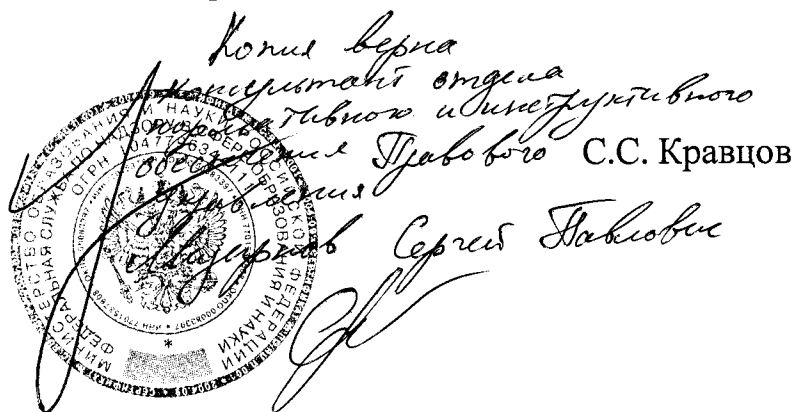 Копия верна
Консультант отдела
нормативного и инструктивного
обеспечения Правового С.С. Кравцов
управления
Сергей Павлович
МИНИСТЕРСТВО ОБРАЗОВАНИЯ И НАУКИ РОССИЙСКОЙ ФЕДЕРАЦИИ
ФЕДЕРАЛЬНАЯ СЛУЖБА ПО НАДЗОРУ В СФЕРЕ ОБРАЗОВАНИЯ И НАУКИ
ОГРН